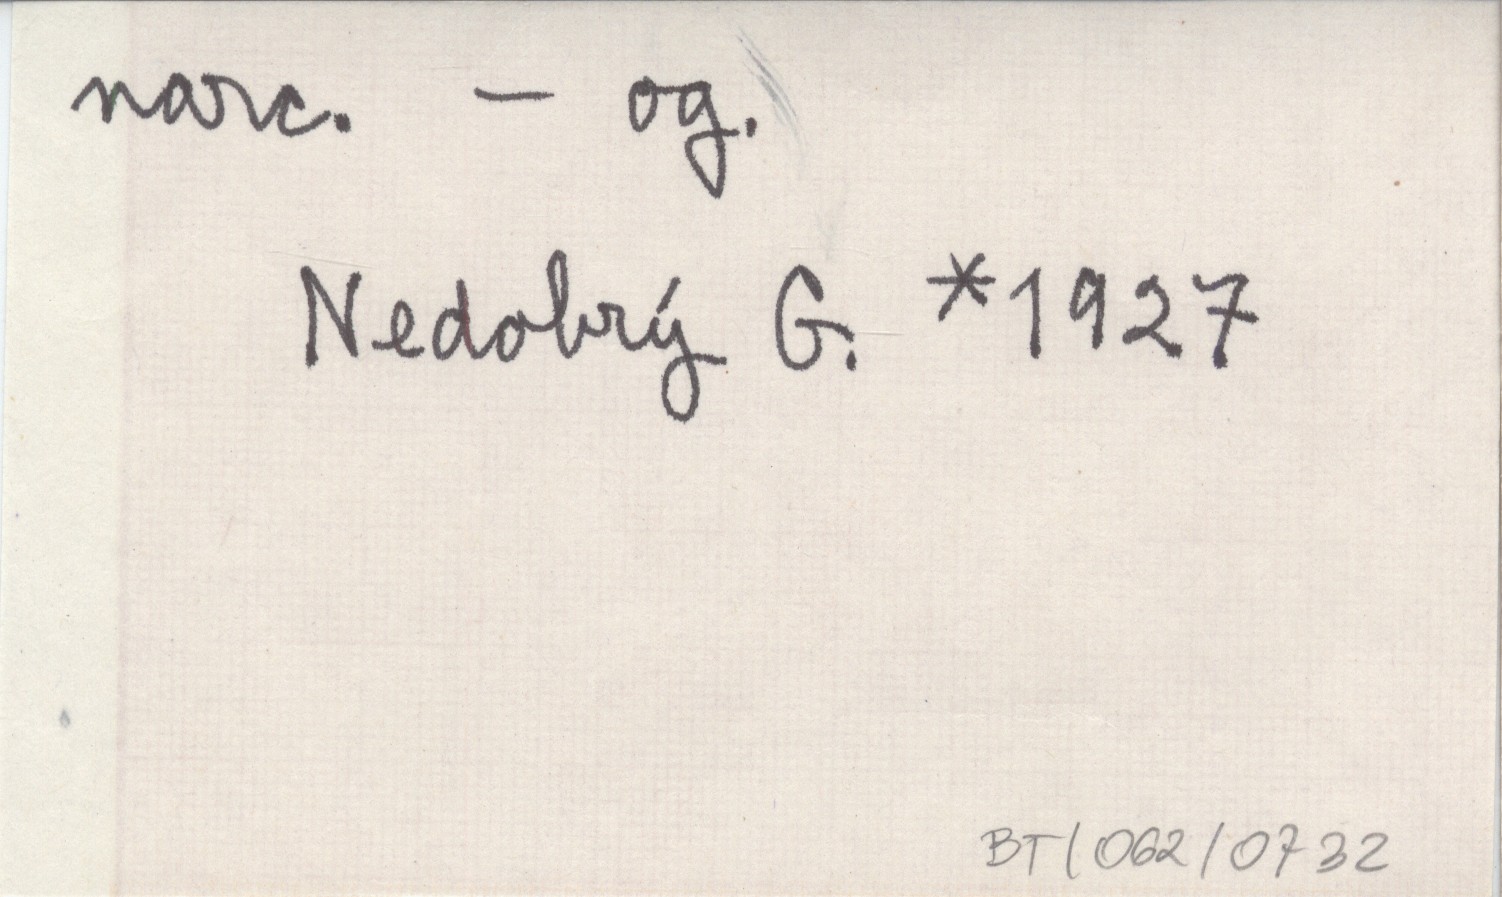 narc. – og.
Nedobrý G. *1927
BT/062/0732